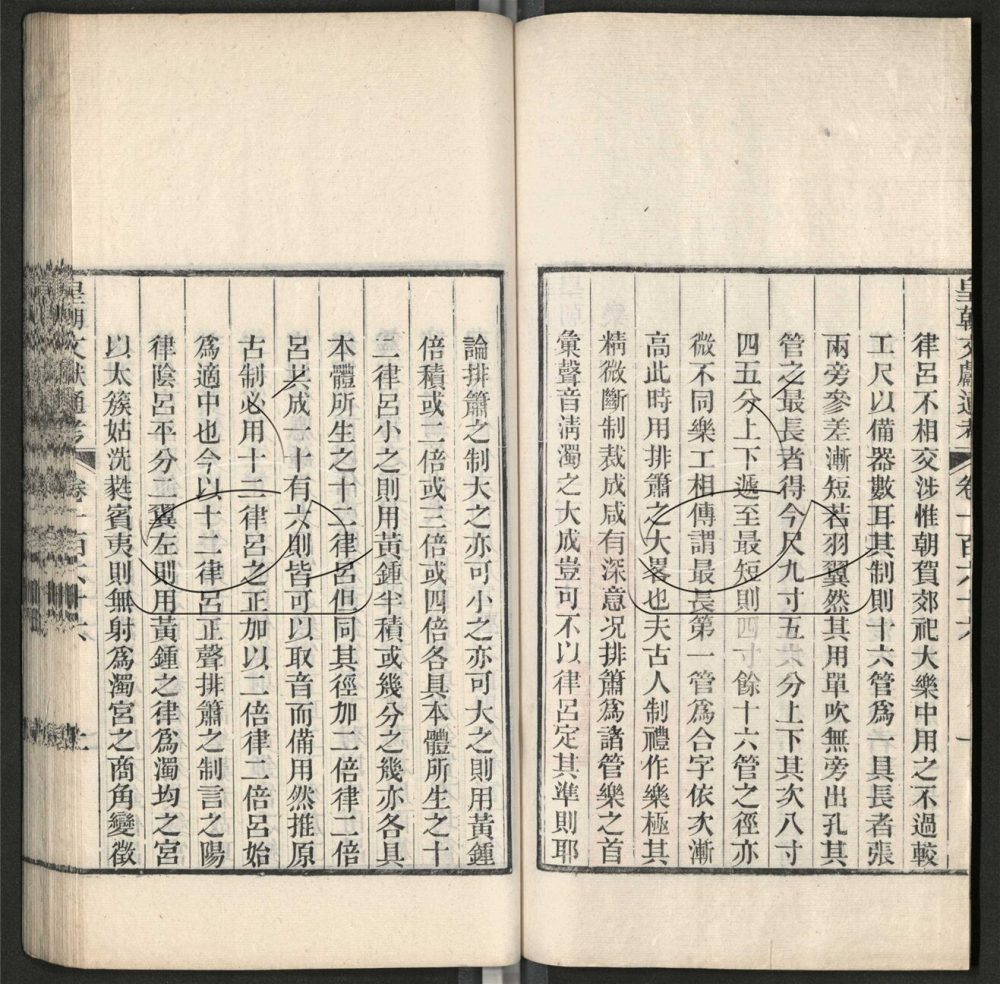 皇朝文獻通考 卷一百六十六
律呂不相交涉惟朝賀郊祀大樂中用之不過較
工尺以備器數耳其制則十六管爲一具長者張
兩旁參差漸短若羽翼然其用單吹無旁出孔其
管之最長者得今尺九寸五六分上下其次八寸
四五分上下遞至最短則四寸餘十六管之徑亦
微不同樂工相傳謂最長第一管爲合字依次漸
高此時用排簫之大畧也夫古人制禮作樂極其
精微斷制裁成咸有深意况排簫爲諸管樂之首
彙聲音淸濁之大成豈可不以律呂定其準則耶
論排簫之制大之亦可小之亦可大之則用黃鍾
倍積或二倍或三倍或四倍各具本體所生之十
二律呂小之則用黃鍾半積或幾分之幾亦各具
本體所生之十二律呂但同其徑加二倍律二倍
呂共成一十有六則皆可以取音而備用然推原
古制必用十二律呂之正加以二倍律二倍呂始
爲適中也今以十二律呂正聲排簫之制言之陽
律陰呂平分二翼左則用黃鍾之律爲濁均之宮
以太簇姑洗蕤賓夷則無射爲濁宮之商角變徵
皇朝文獻通考 卷一百六十六 二